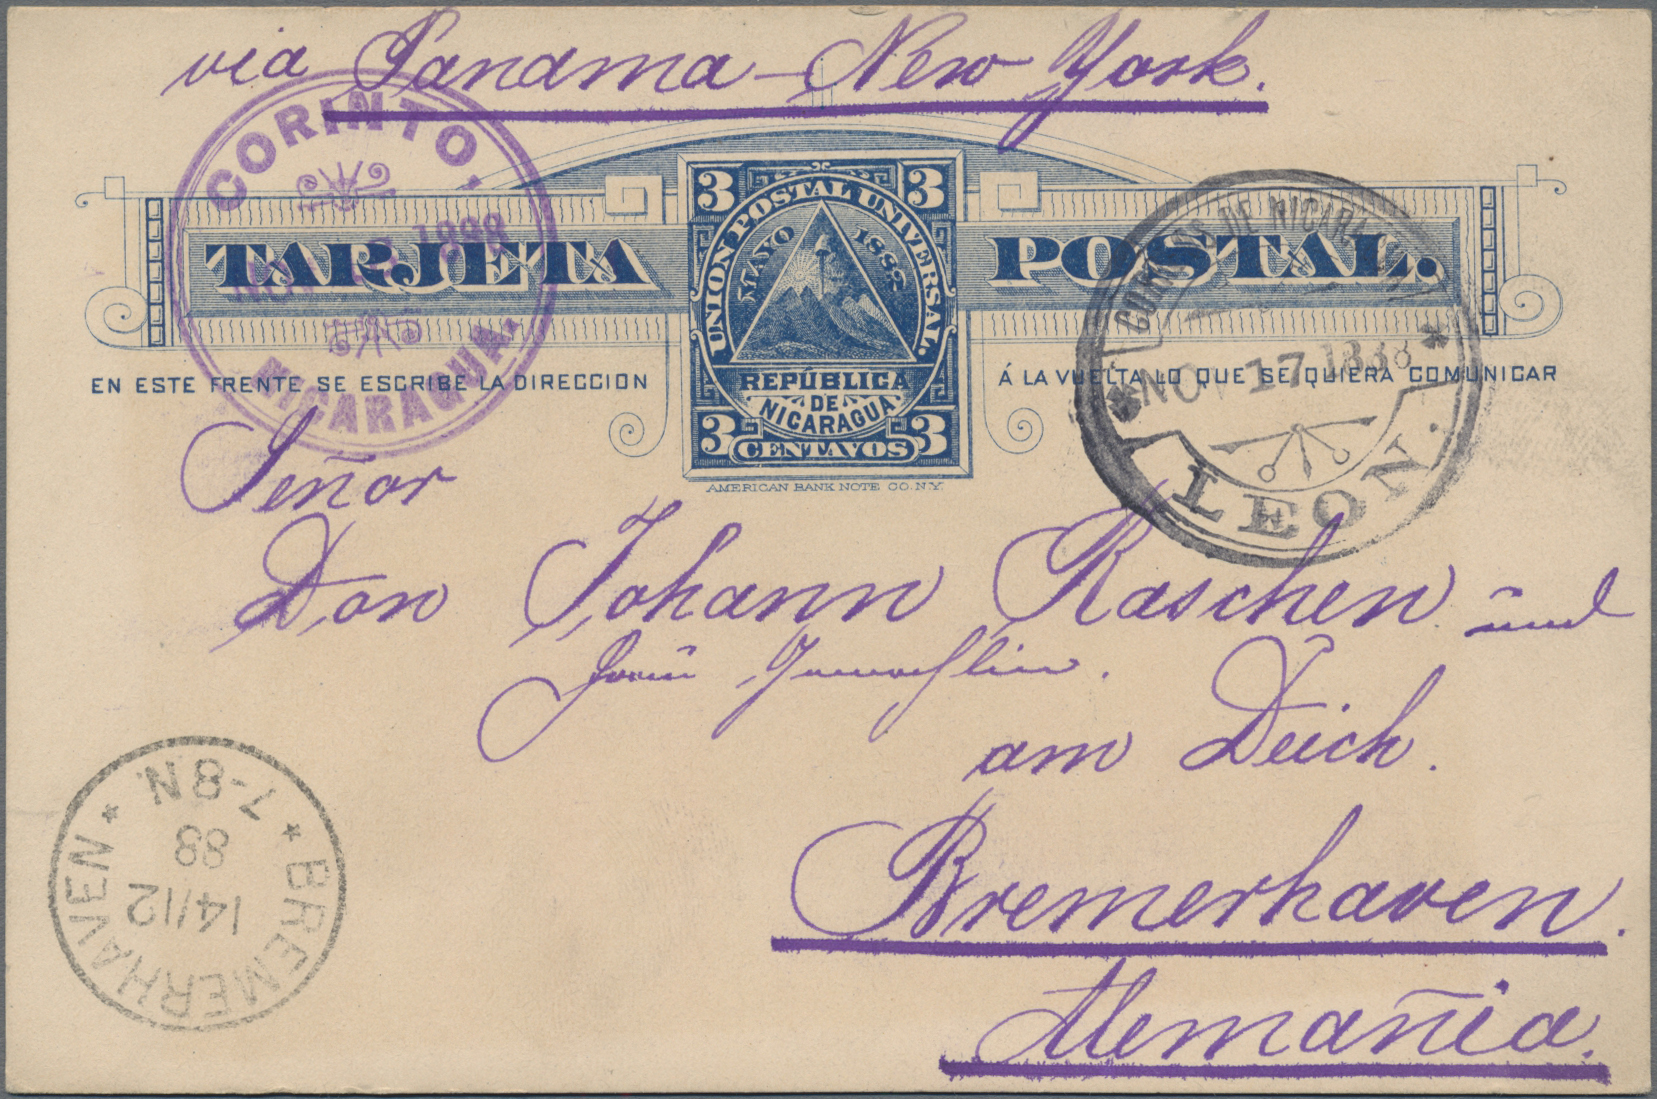 via Panama - New York.
CORINTO,
1888
NICARAGUA.
TARJETA POSTAL.
3 3
UNION POSTAL UNIVERSAL.
MAYO 1882
REPÚBLICA
DE
NICARAGUA
3 CENTAVOS 3
AMERICAN BANK NOTE CO. N.Y.
EN ESTE FRENTE SE ESCRIBE LA DIRECCION
Á LA VUELTA LO QUE SE QUIERA COMUNICAR
CORREOS DE NICARAGUA
NOV 17 1888
LEON.
Señor
Don Johann Raschen und
Frau Gemahlin.
am Deich.
Bremerhaven.
Alemañia.
BREMERHAVEN
14/12
88
7-8N